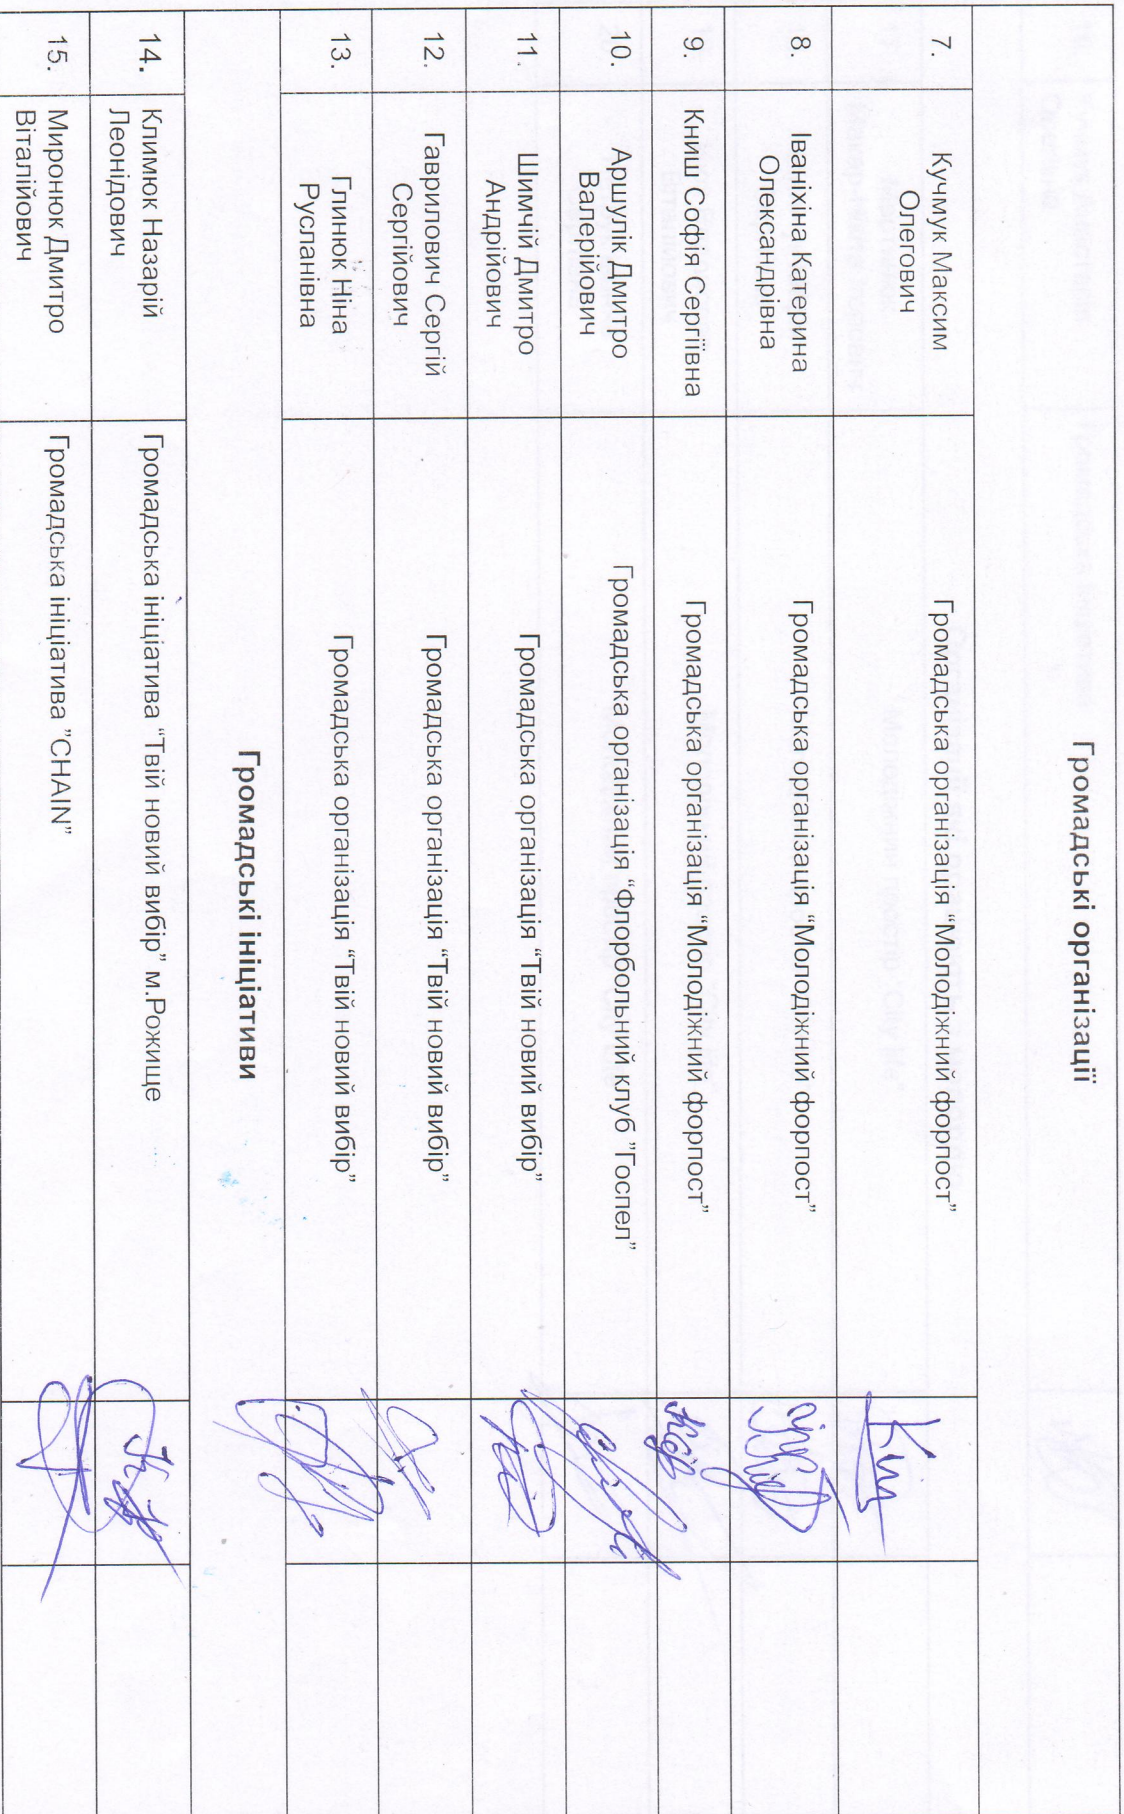 Громадські організації
7. Кучмук Максим Олегович Громадська організація “Молодіжний форпост”
8. Іваніхіна Катерина Олександрівна Громадська організація “Молодіжний форпост”
9. Книш Софія Сергіївна Громадська організація “Молодіжний форпост”
10. Аршулік Дмитро Валерійович Громадська організація “Флорбольний клуб ”Госпел”
11. Шимчій Дмитро Андрійович Громадська організація “Твій новий вибір”
12. Гаврилович Сергій Сергійович Громадська організація “Твій новий вибір”
13. Глинюк Ніна Русланівна Громадська організація “Твій новий вибір”
Громадські ініціативи
14. Климюк Назарій Леонідович Громадська ініціатива “Твій новий вибір” м.Рожище
15. Миронюк Дмитро Віталійович Громадська ініціатива ”CHAIN”